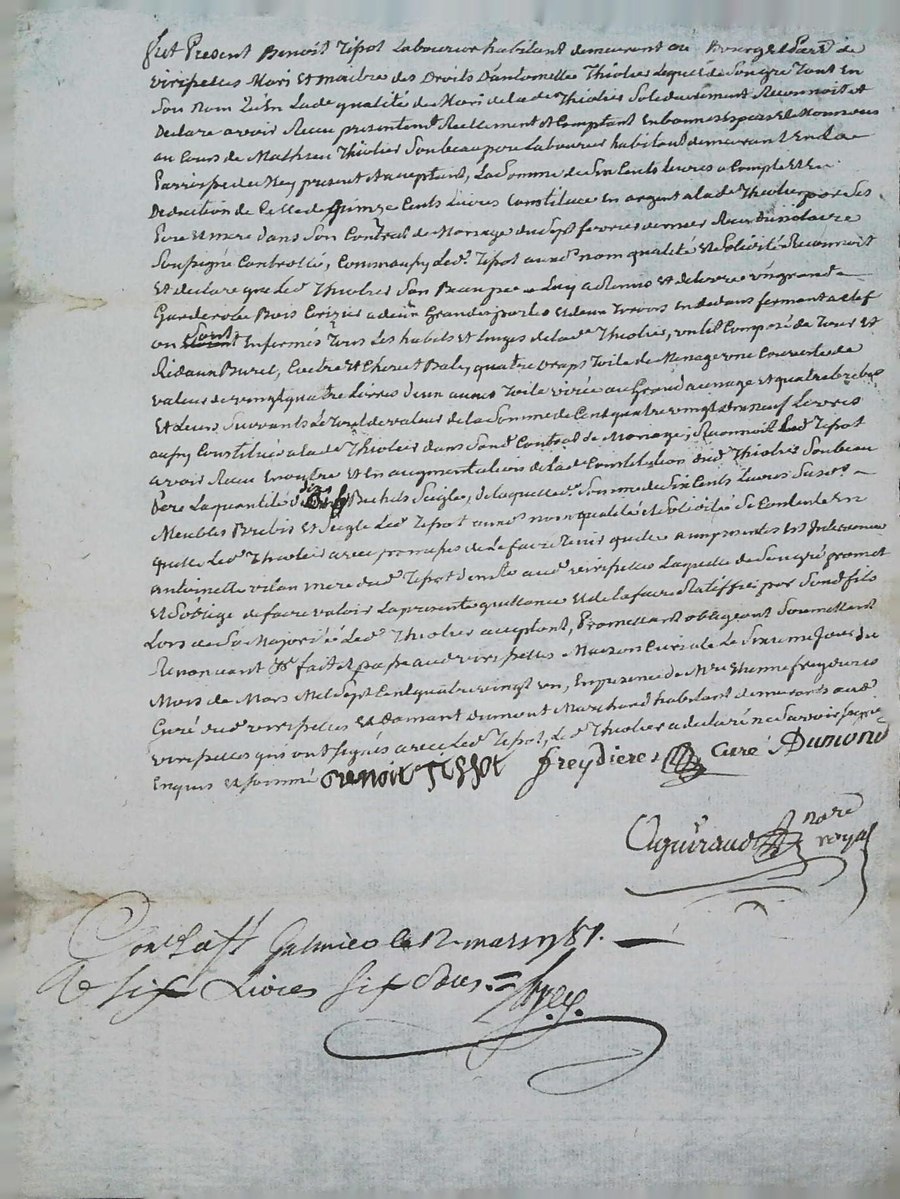 fut Present Benoit Tissot Laboureur habitant demeurant au Bourg et Parr.e de
viricelles Mari et maitre des Droits D'antoinette Thiolier Lequel de Son gré Tant En
Son Nom qu'En Lade qualité de Mari de lade Thiolier Solidairement Reconnoit et
Declare avoir Reçu presentemt Reellement et Comptant En bonnes Espèces de Monnoies
au Cours de Mathieu Thiolier Son beau pere Laboureur habitant demeurant En La
Parroisse de present et acceptant, La Somme de Six Cents Livres a Compte Et En
Deduction de Celle de quinze Cents Livres Constituée En argent a lade Thiolier par Ses
Pere et mere dans Son Contrat de Mariage du Sept fevrier dernier Reçu du notaire
Soussigné Controllé, Comme aussy Led. Tissot aux d. nom qualité et Solidité Reconnoit
Et declare que Led. Thiolier Son Beaupere Luy a donné et delivré un grand
Garderobe Bois Cerizier a deux Grandes portes et deux tiroirs En dedans fermant a clef
ou Sont Enfermés Tous Les habits et Linges de lade Thiolier, un lit Composé de Tour et
Rideaux Burel, Coetre et Chevet Bale, quatre draps Toile de Menage une Couverte de
valeur de vingt quatre Livres aunes Toile au Grand aunage et quatre brebis
Et Leurs Suivants Le Tout de valeur de la Somme de Cent quatre vingt neuf Livres
aussy Constitué a lade Thiolier dans Sond. Contrat de Mariage; Reconnoit Led. Tissot
avoir Reçu En outre et En augmentation de lade Constitution dud. Thiolier Son beau
Pere La quantité de dix Bichets Seigle, de laquelle d. Somme de Six Cents Livres Susd.
Meubles Brebis et Seigle Led. Tissot aux d. nom qualité et Solidité Se Contente En
quitte Led. Thiolier avec promesse de Le faire Tenir quitte a mesmes Est Intervenue
antoinette mere dud. Tissot demte aud. viricelles Laquelle de Son gré promet
et S'oblige de faire valoir La presente quittance et de la faire Ratiffier par Sond. fils
Lors de Sa Majorité Led. Thiolier acceptant, Promettant obligeant Soumettant
Renonçant &c. fait et passé aud. viricelles Maison Curiale Le Sixieme Jour du
Mois de Mars Mil Sept Cent quatre vingt un, En presence de Mre Etienne freydieres
Curé dud. viricelles Et Damant Dumont Marchand habitant demeurants aud.
viricelles qui ont Signés avec Led. Tissot, Led. Thiolier a declaré ne Savoir Signer
Enquis et sommé Benoit Tissot freydieres Curé Dumond
Aguiraud Nore royal
Conlé a St Galmier le 12 mars 1781.
R Six Livres Six Sous.